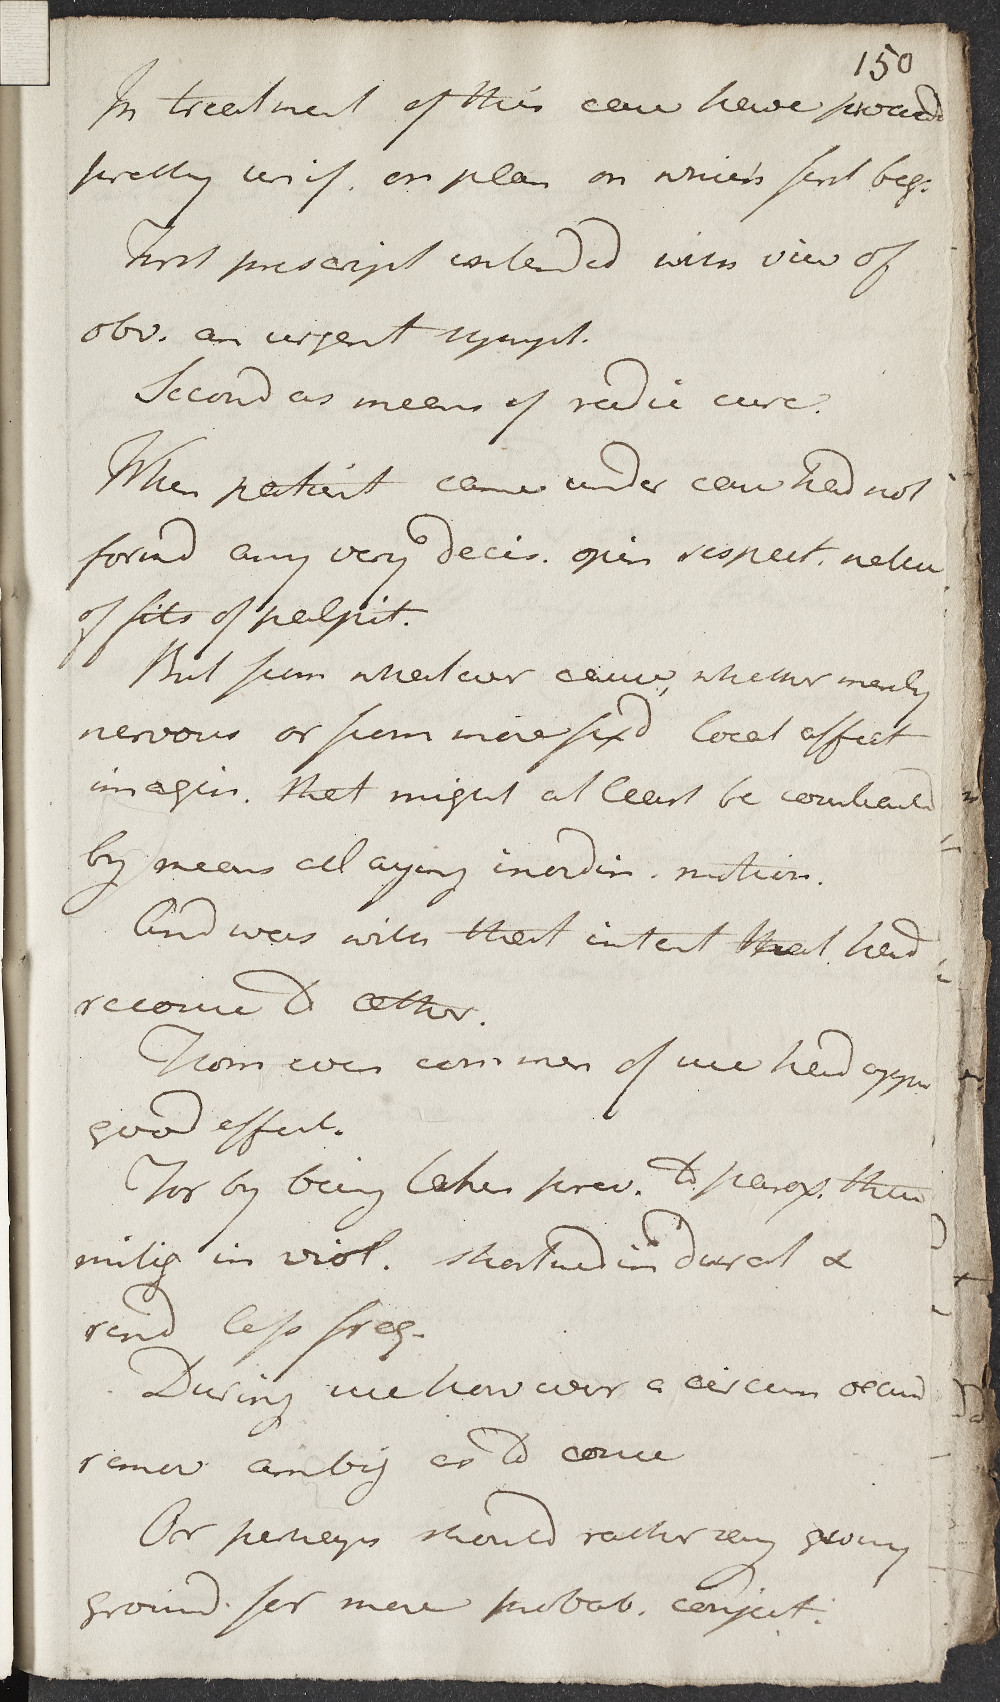 150
In treatment of this case have proceedd
pretty unif. on plan on which first beg.
First prescript intended with view of
obv. an urgent sympt.
Second as means of radic cure.
When patient came under care had not
formd any very decis. opin respect. natu
of fits of palpit.
But from whatever cause, whether merely
nervous or from more fixd local affect
imagin. that might at least be combated
by means allaying inordin. motion.
And was with that intent that had
recommd æther.
From even commen of use had appar
good effect.
For by being taken prev. to parox. them
mitig in viol. shortned in durat &
rend less freq.
During use however a circum occurd
remov ambig as to cause
Or perhaps should rather say giving
ground for more probab. conject.